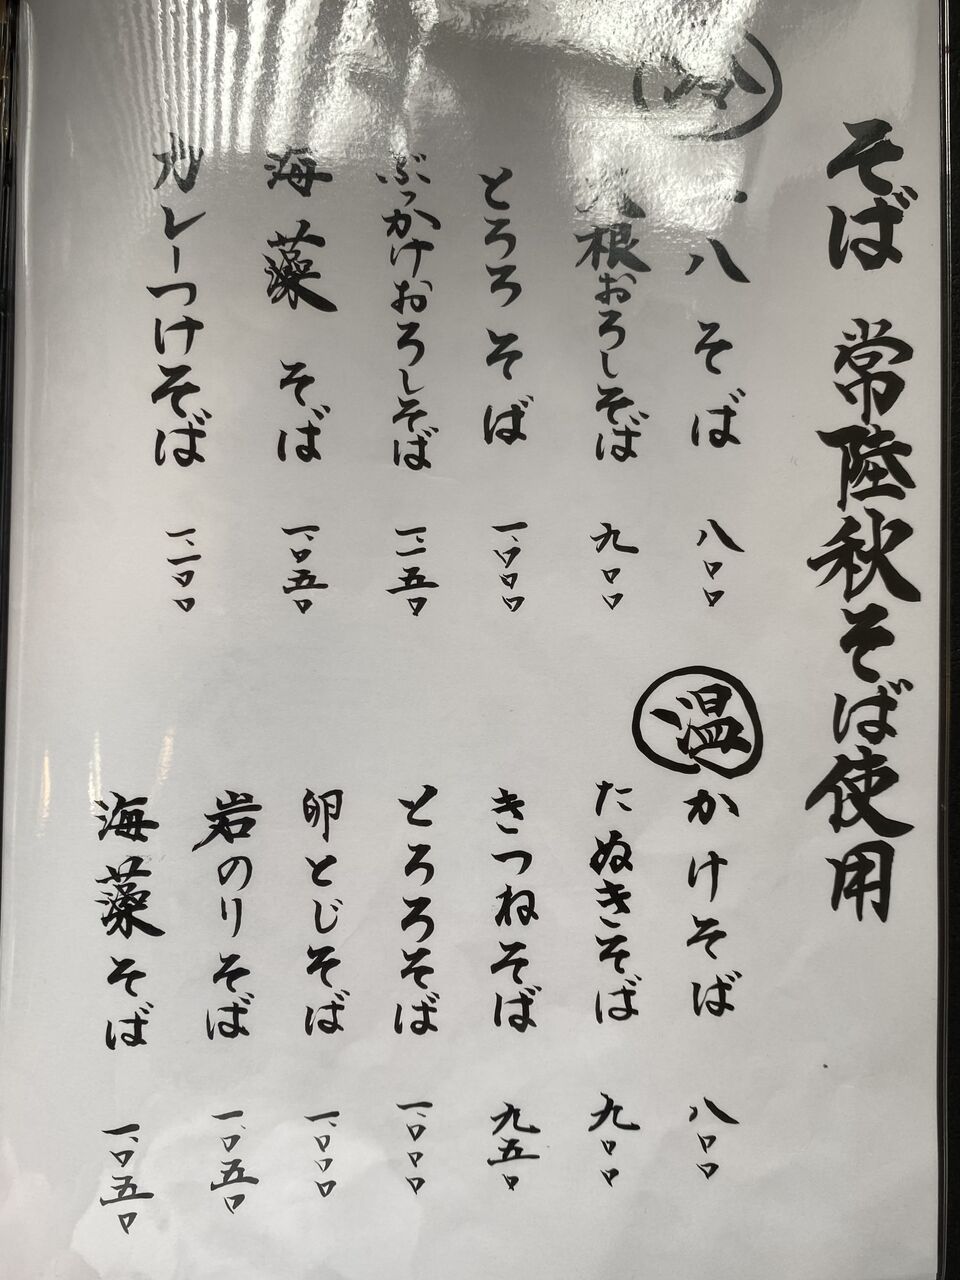 そば 常陸秋そば使用
冷
二八そば 八〇〇
大根おろしそば 九〇〇
とろろそば 一、〇〇〇
ぶっかけおろしそば 一、一五〇
海藻そば 一、〇五〇
カレーつけそば 一、一〇〇
温
かけそば 八〇〇
たぬきそば 九〇〇
きつねそば 九五〇
とろろそば 一、〇〇〇
卵とじそば 一、〇〇〇
岩のりそば 一、〇五〇
海藻そば 一、〇五〇